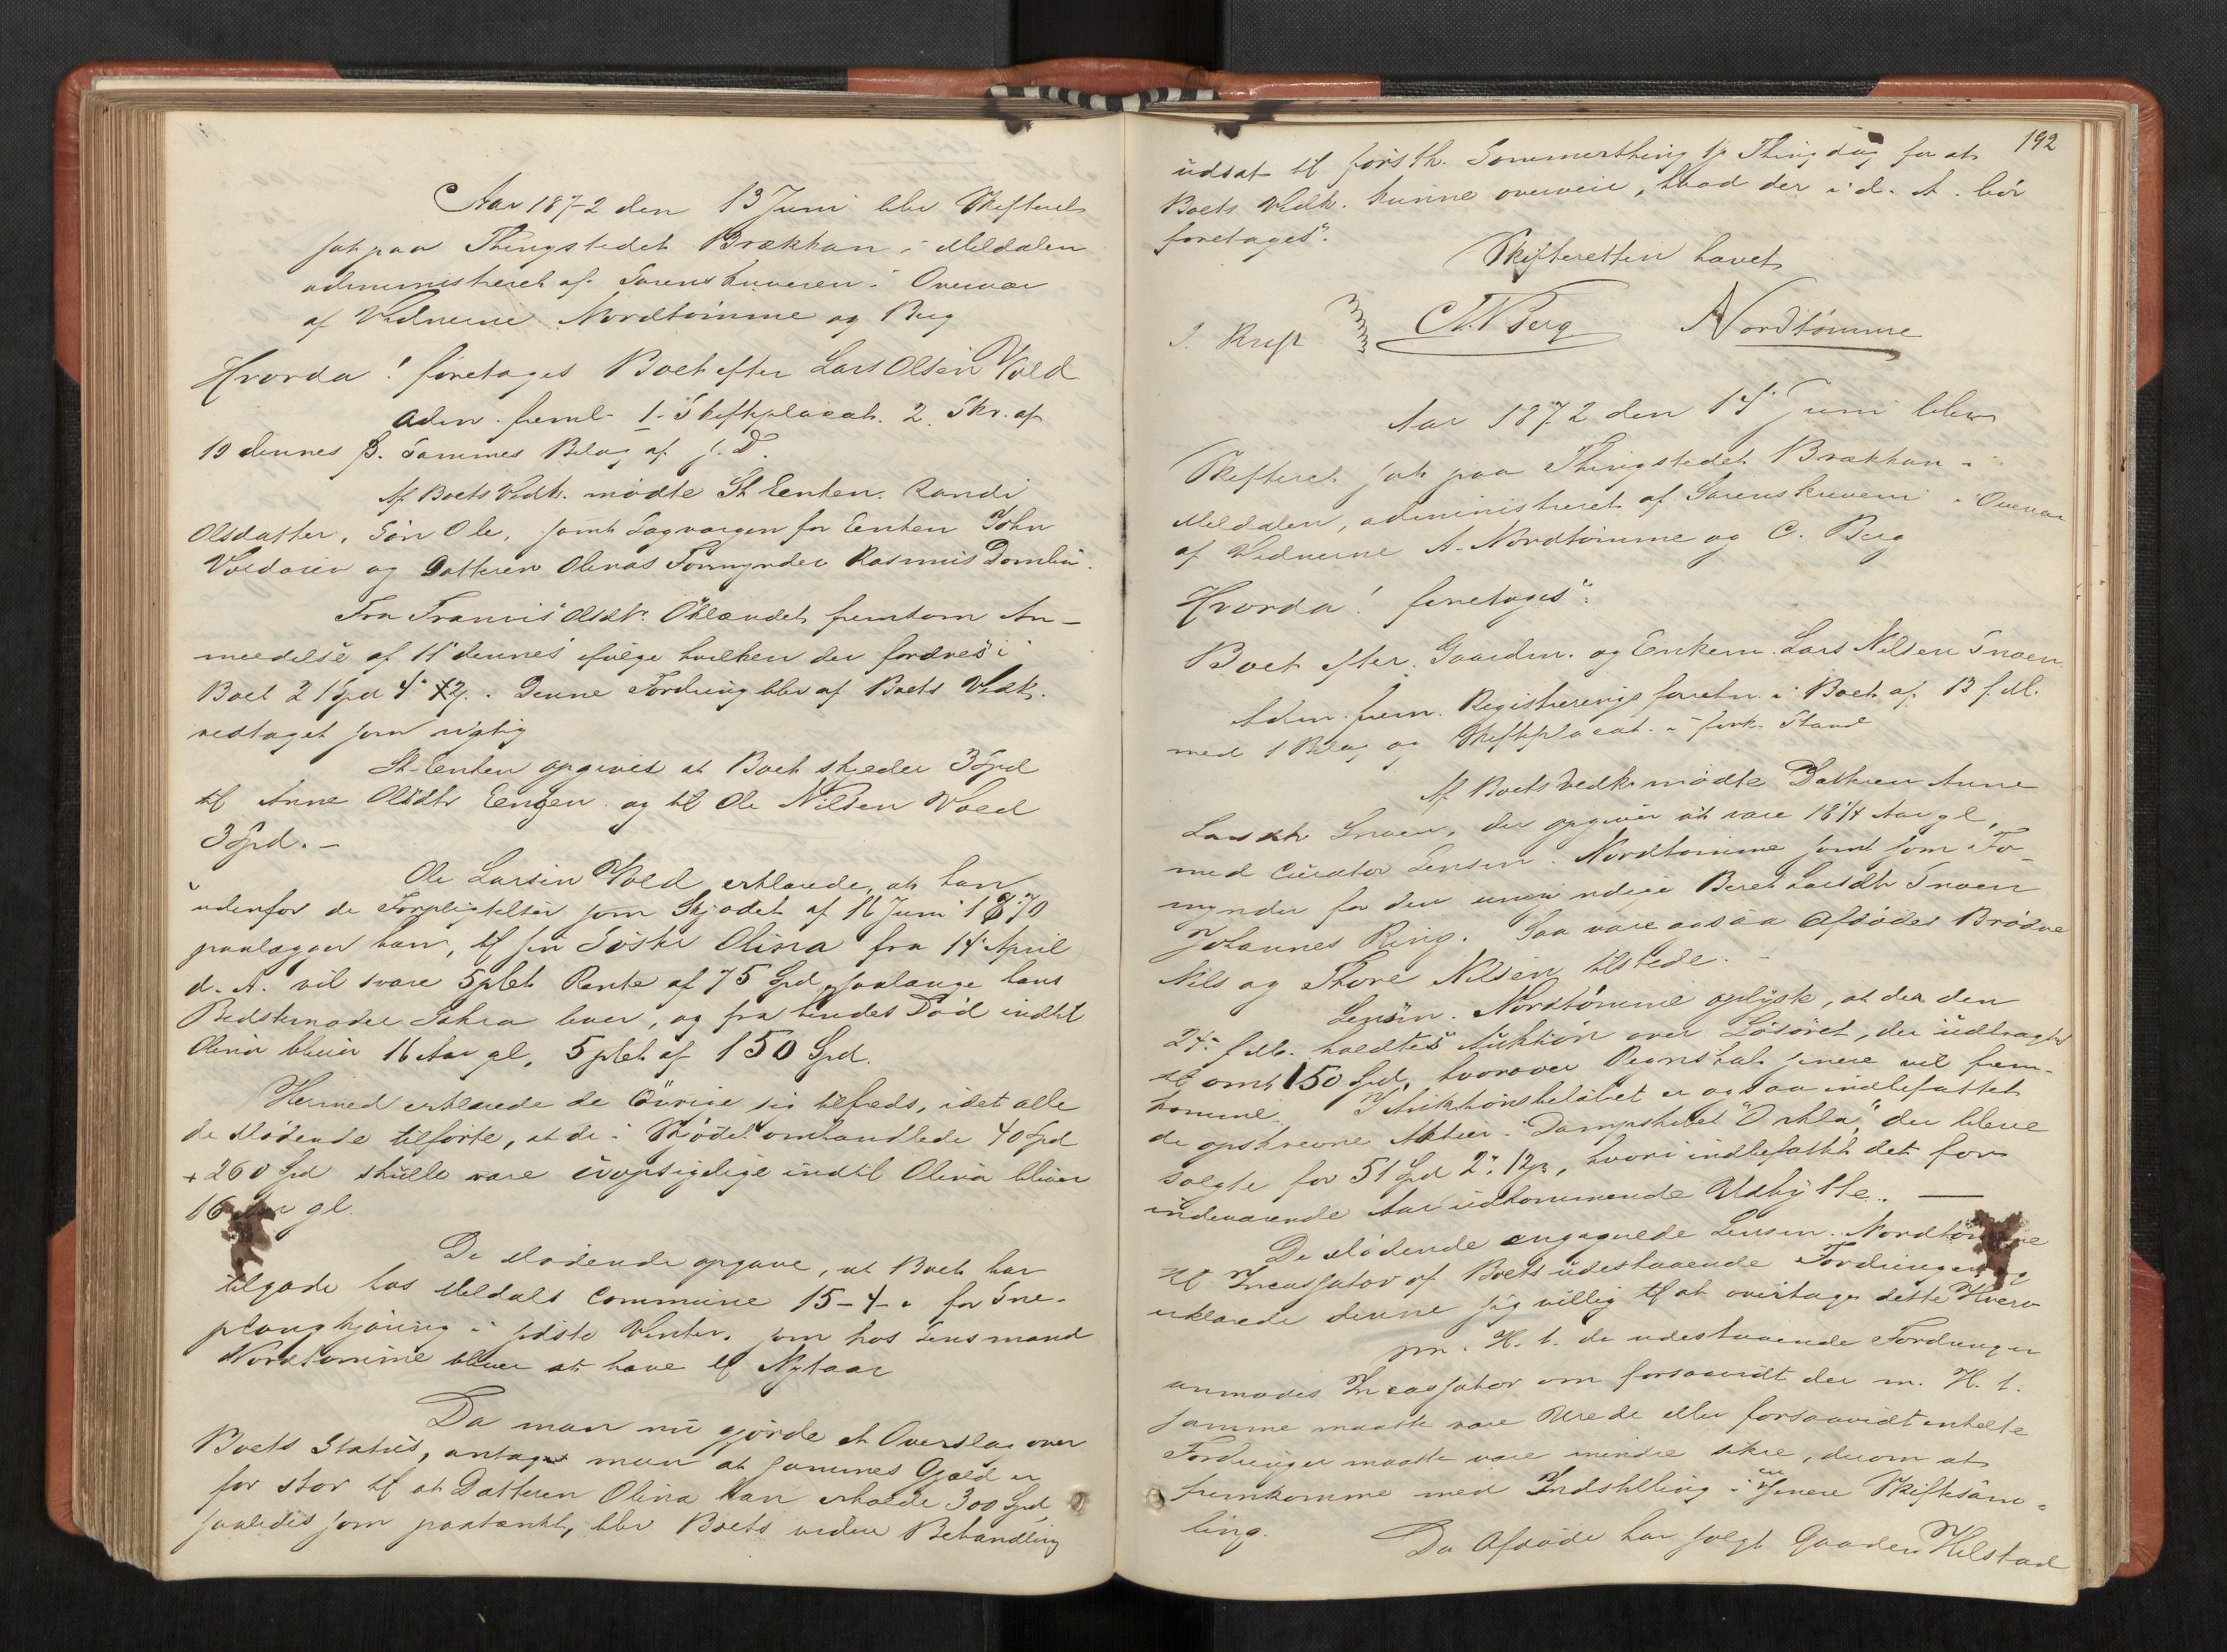 Aar 1872 den 13 Juni blev Skifteret
sat paa Thingstedet Brækkan i Meldalen
administreret af Sorenskriveren i Overvær
af Vidnerne Nordtømme og Berg
Hvorda! foretoges Boet efter Lars Olsen Vold
Adm. freml. 1. Skifteplacat. 2. Skr. af
10 dennes 3. Sammes Bilag af s. D.
Af Boets Vedk. mødte St. Enken Randi
Olsdatter, Søn Ole, samt Lagværgen for Enken John
og Datteren Olinas Formynder Rasmus Domli.
Fra Olsdtr. fremkom An-
meldelse af 11 dennes ifølge hvilken der fordres i
Boet 2 Spd 4 " 12 s. Denne Fordring blev af Boets Vedk.
vedtaget som rigtig
St. Enken opgiver at Boet skylder 3 Spd
til Anne Olsdtr Eengen og til Ole Nilsen Vold
3 Spd. –
Ole Larsen Vold erklærede, at han
udenfor de Forpligtelser som Skjødet af 16 Juni 1870
paalægger ham, til sin Søster Olina fra 14 April
d. A. vil svare 5 pCt. Rente af 75 Spd, saalænge hans
Bedstemoder lever, og fra hendes Død indtil
Olina bliver 16 Aar gl, 5 pCt. af 150 Spd.
Hermed erklærede de Øvrige sig tilfreds, idet alle
de Mødende tilførte, at de i Skjødet omhandlede 40 Spd
+ 260 Spd skulle være uopsigelige indtil Olina bliver
16 Aar gl.
De Mødende opgave, at Boet har
tilgode hos Meldals Commune 15-4- " for Sne-
plougkjøring i sidste Vinter, som hos Lensmand
Nordtømme bliver at hæve til Nytaar
Da man nu gjorde et Overslag over
Boets Status, antages man at sammes Gjæld er
for stor til at Datteren Olina kan erholde 300 Spd
saaledes som paatænkt, blev Boets videre Behandling
192
udsat til førstk. Sommerthing 1ste Thingdag for at
Boets Vedk. kunne overveie, hvad der i d. A. bør
foretages.
Skifteretten hævet
C. N. Berg Nordtømme
Aar 1872 den 14 Juni blev
Skifteret sat paa Thingstedet Brækkan i
Meldalen, administreret af Sorenskriveren i Overvær
af Vidnerne A. Nordtømme og C. Berg
Hvorda! foretoges:
Boet efter Gaardm. og Enkem. Lars Nilsen Snoen
Adm. frem. Registreringsforretn. i Boet af 13 f. M.
med 1 Bilag og Skifteplacat i fork. Stand
Af Boets Vedk. mødte Datteren Anne
Larsdtr Snoen, der opgiver at være 18 1/4 Aar gl,
med Curator Lensm. Nordtømme samt som For-
mynder for den umyndige Beret Larsdtr Snoen
Johannes Ring. Saa vare ogsaa Afdødes Brødre
Nils og Thore Nilsen tilstede. –
Lensm. Nordtømme oplyste, at der den
24 f. M. holdtes Auktion over Løsøret, der udbragtes
til omt. 150 Spd, hvorover Regnskab senere vil frem-
komme. I Auktionsbeløbet er ogsaa indbefattet
de opskrevne Aktier i Dampskibet "Orkla", der bleve
solgte for 51 Spd 2 " 12 s, hvori indbefattet det for
indeværende Aar udkommende Udbytte. –
De Mødende engagerede Lensm. Nordtømme
til Incassator af Boets udestaaende Fordringer og
erklærede denne sig villig til at overtage dette Hverv
m. H. t. de udestaaende Fordringer
anmodes Incassator om forsaavidt der m. H. t.
samme maatte være eller forsaavidt enkelte
Fordringer maatte være mindre sikre, derom at
fremkomme med Indstilling i en senere Skiftesam-
ling.
Da Afdøde har solgt Gaarden Hilstad